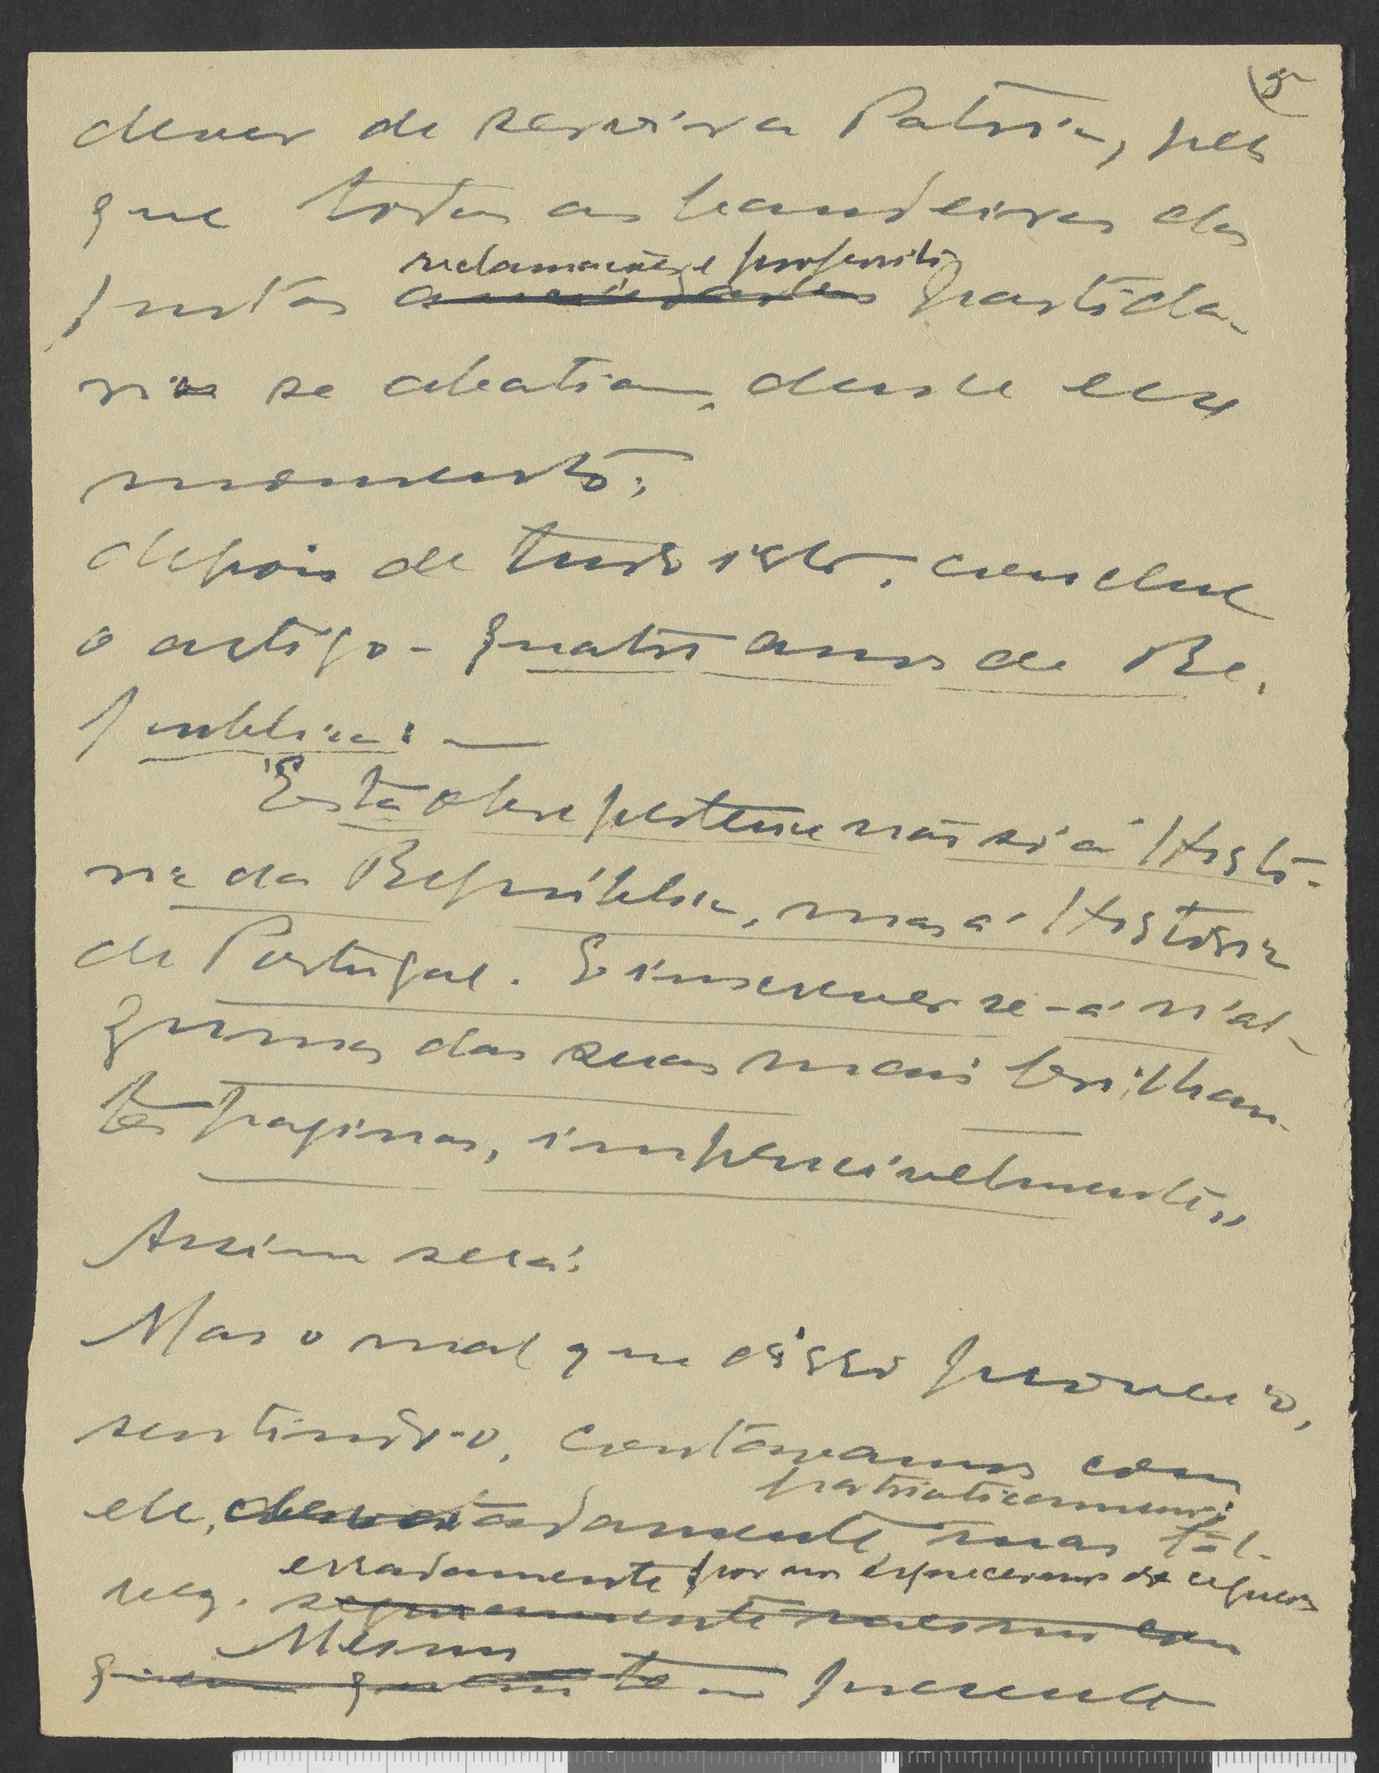 5
dever de servir a Patria, pelo
que todas as bandeiras das
justas reclamações e proposito partida-
rias se abatiam, desde esse
momento;
depois de tudo isto, conclue
o artigo - Quatro annos de Re-
publica: —
"Esta obra pertence não só á Histó-
ria da República, mas á História
de Portugal. E inscrever-se-á n'al-
gumas das suas mais brilhan-
tes paginas, imperecivelmente„
Assim será.
Mas o mal que d'isso proveio,
sentindo-o, contávamos com
patrioticamente
ele, mas tal-
erradamente por nos esquecermos de
vez,
Mesmo
presente